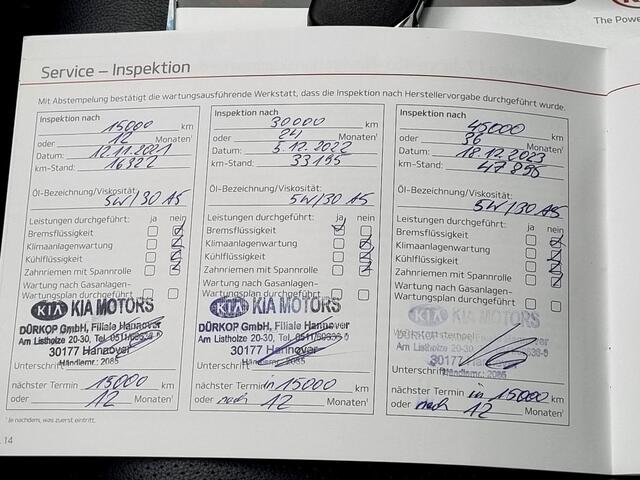 The Powe
Service – Inspektion
Mit Abstempelung bestätigt die wartungsausführende Werkstatt, dass die Inspektion nach Herstellervorgabe durchgeführt wurde.
Inspektion nach
15000 km
oder 12 Monaten¹
Datum: 12.11.2021
km-Stand: 16322
Öl-Bezeichnung/Viskosität:
5W/30 A5
Leistungen durchgeführt: ja nein
Bremsflüssigkeit
Klimaanlagenwartung
Kühlflüssigkeit
Zahnriemen mit Spannrolle
Wartung nach Gasanlagen-
Wartungsplan durchgeführt
KIA KIA MOTORS
DÜRKOP GmbH, Filiale Hannover
Am Listholze 20-30, Tel.
30177 Hannover
Händlernr.: 2085
Unterschrift
nächster Termin 15000 km
oder 12 Monaten¹
Inspektion nach
30000 km
oder 24 Monaten¹
Datum: 5.12.2022
km-Stand: 33195
Öl-Bezeichnung/Viskosität:
5W/30 A5
Leistungen durchgeführt: ja nein
Bremsflüssigkeit
Klimaanlagenwartung
Kühlflüssigkeit
Zahnriemen mit Spannrolle
Wartung nach Gasanlagen-
Wartungsplan durchgeführt
KIA KIA MOTORS
DÜRKOP GmbH, Filiale Hannover
Am Listholze 20-30, Tel.
30177 Hannover
Händlernr.: 2085
Unterschrift
nächster Termin in 15000 km
oder nach 12 Monaten¹
Inspektion nach
45000 km
oder 36 Monaten¹
Datum: 18.12.2023
km-Stand: 47895
Öl-Bezeichnung/Viskosität:
5W/30 A5
Leistungen durchgeführt: ja nein
Bremsflüssigkeit
Klimaanlagenwartung
Kühlflüssigkeit
Zahnriemen mit Spannrolle
Wartung nach Gasanlagen-
Wartungsplan durchgeführt
KIA KIA MOTORS
Am Listholze 20-30,
30177 Hannover
Händlernr.: 2085
Unterschrift
nächster Termin in 15000 km
oder nach 12 Monaten¹
¹ Je nachdem, was zuerst eintritt.
14